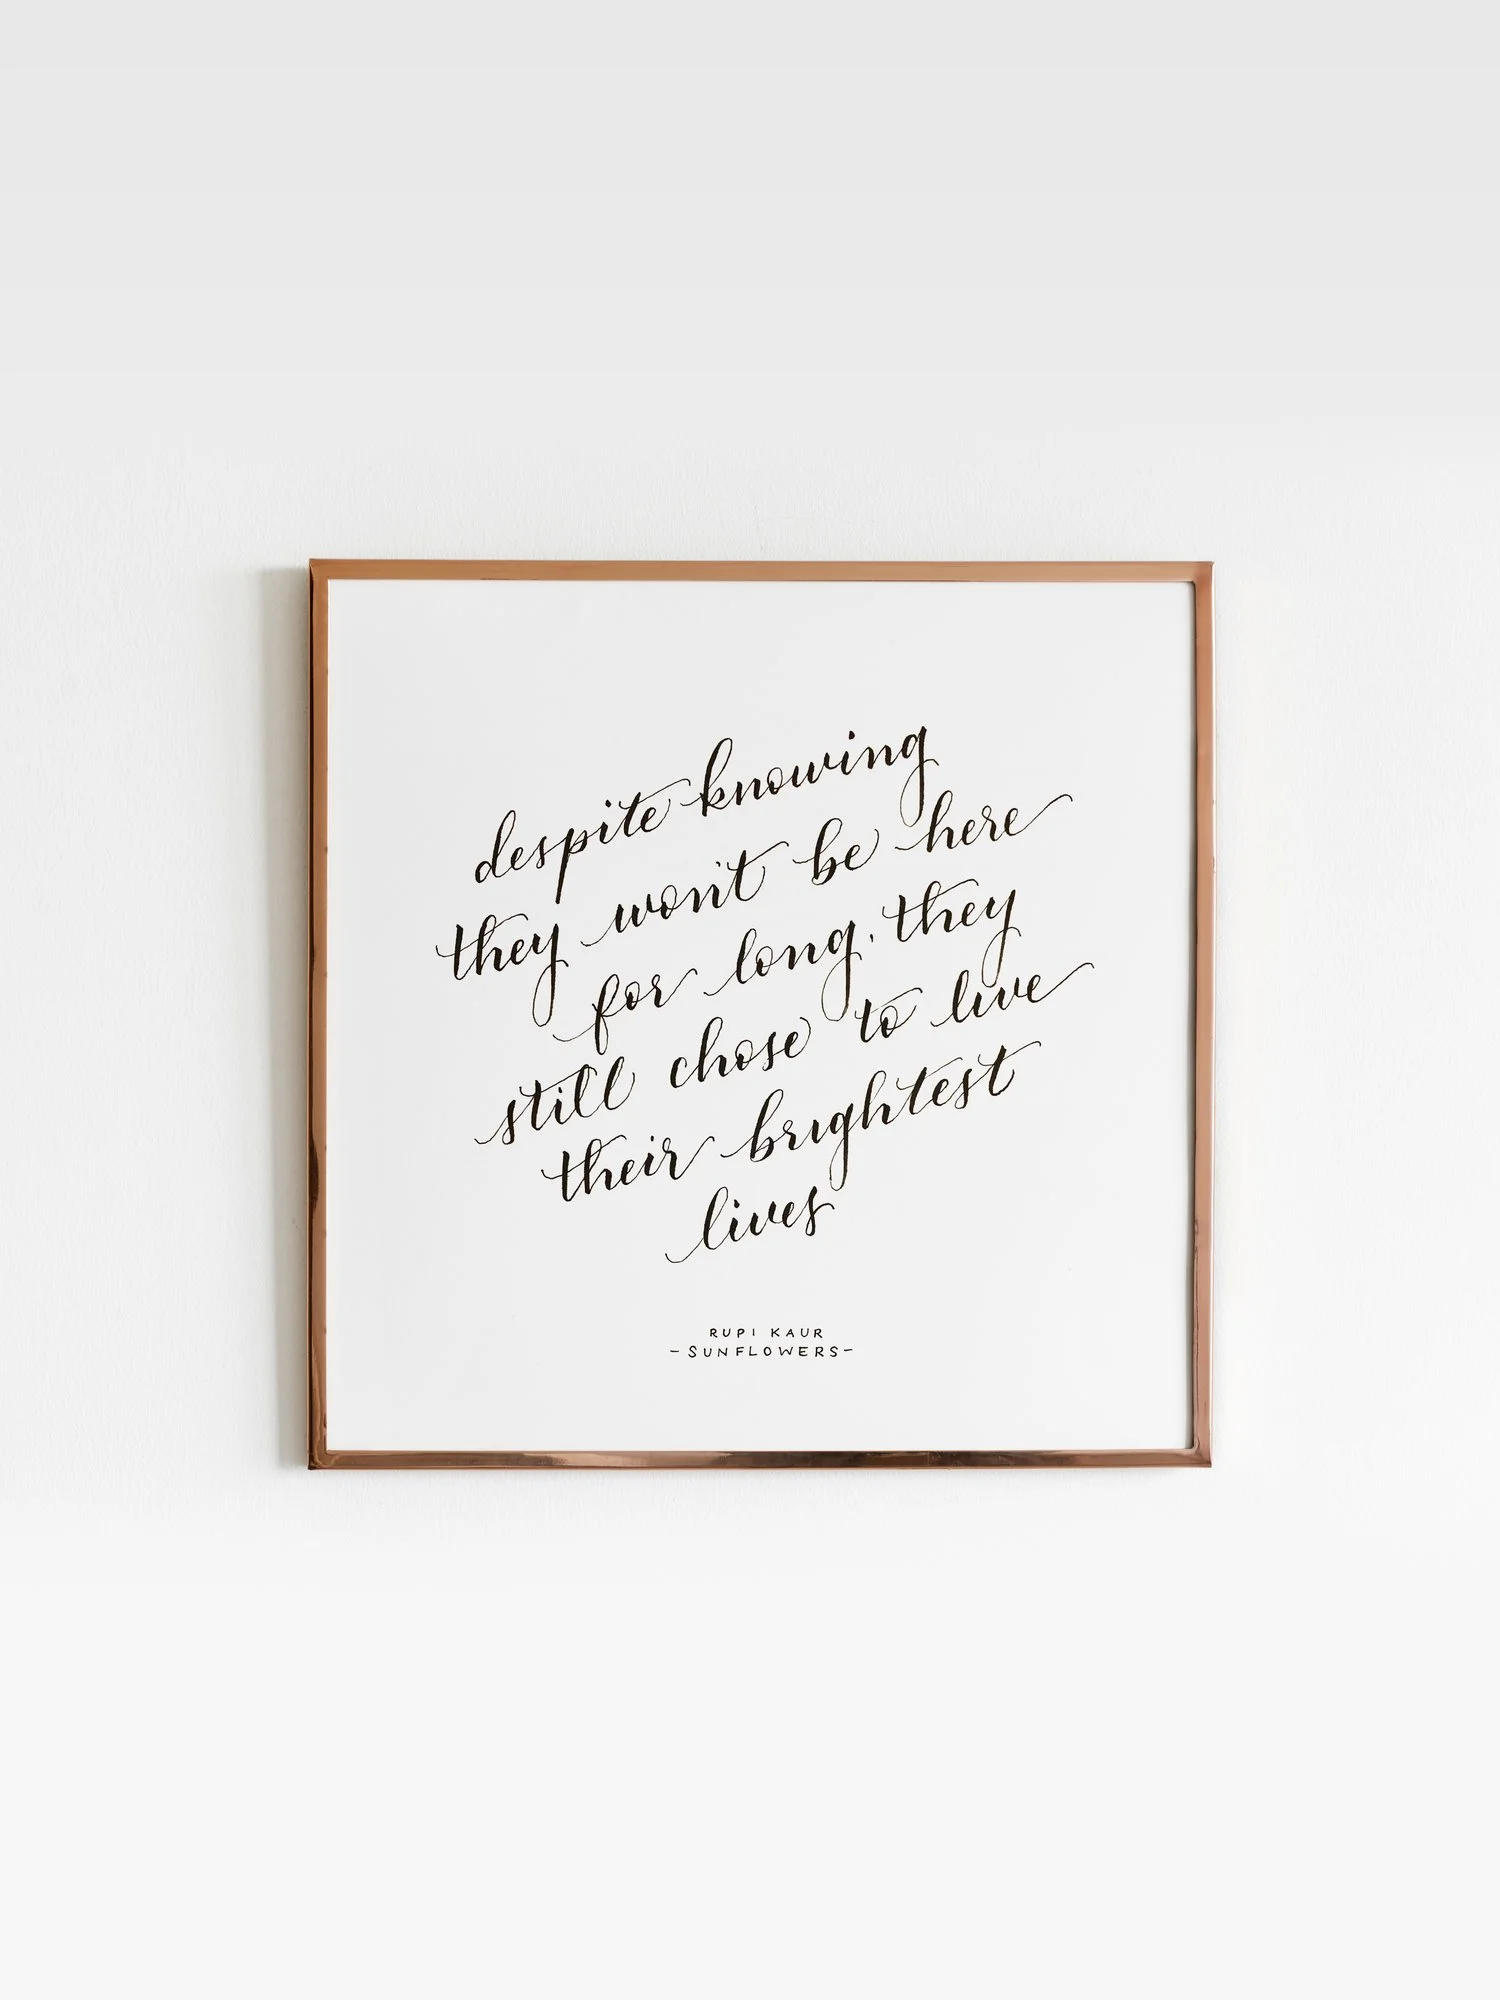 despite knowing
they won't be here
for long, they
still chose to live
their brightest
lives
RUPI KAUR
-SUNFLOWERS-